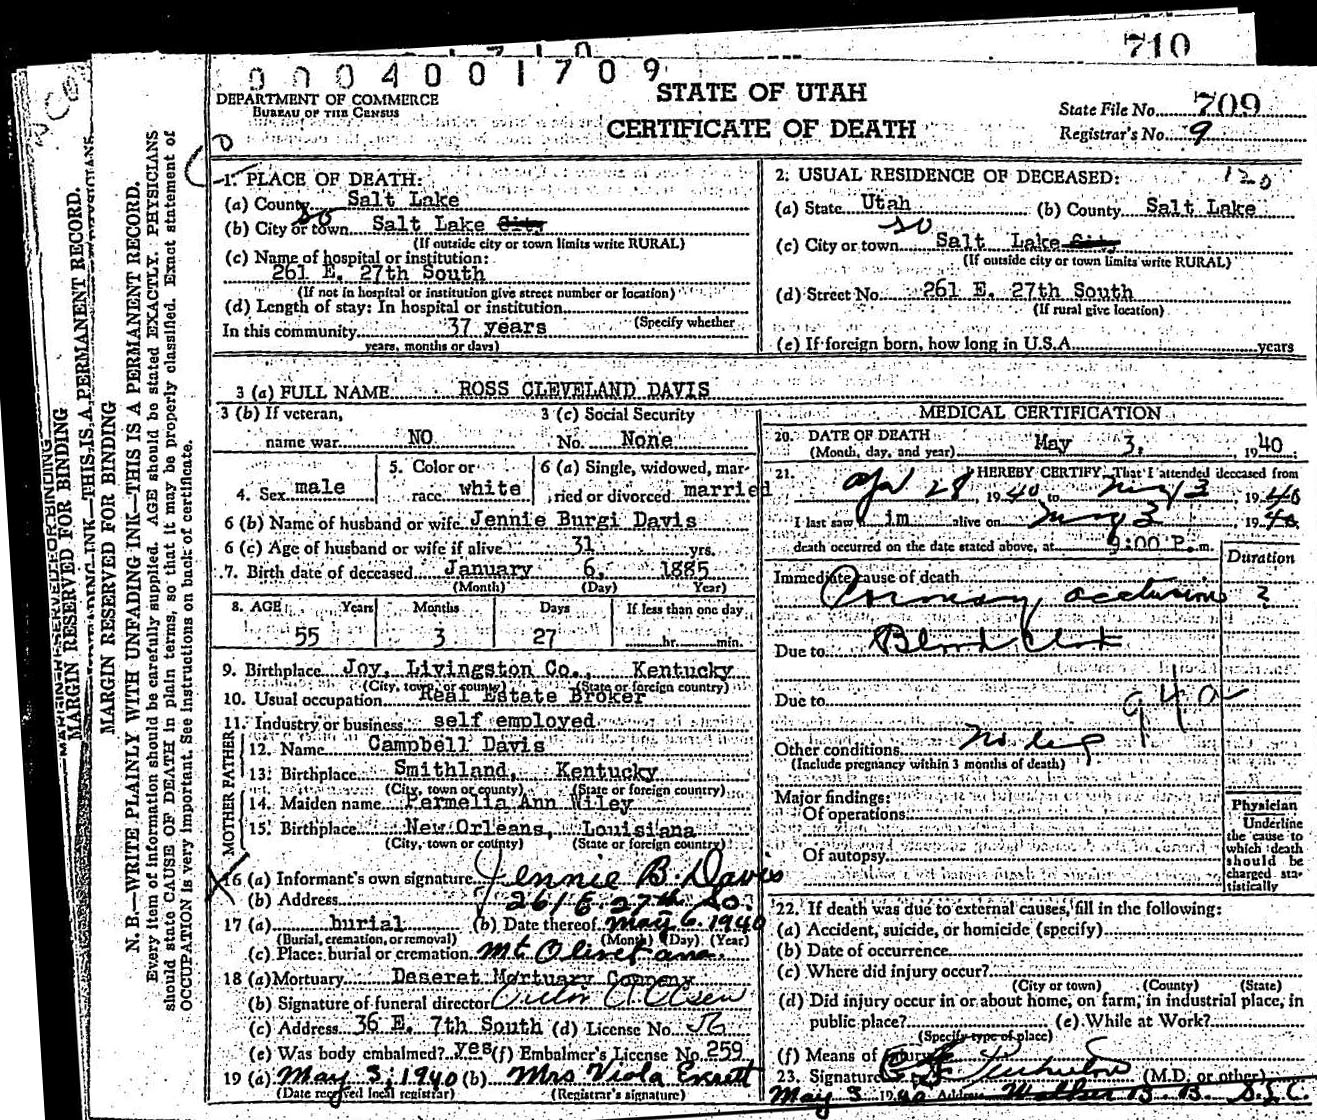 710
0004001709
DEPARTMENT OF COMMERCE
BUREAU OF THE CENSUS
STATE OF UTAH
CERTIFICATE OF DEATH
State File No. 709
Registrar's No. 9
MARGIN RESERVED FOR BINDING
N. B.—WRITE PLAINLY WITH UNFADING INK—THIS IS A PERMANENT RECORD.
Every item of information should be carefully supplied. AGE should be stated EXACTLY. PHYSICIANS
should state CAUSE OF DEATH in plain terms, so that it may be properly classified. Exact statement of
OCCUPATION is very important. See instructions on back of certificate.
1. PLACE OF DEATH:
(a) County Salt Lake
(b) City or town So Salt Lake City
(If outside city or town limits write RURAL)
(c) Name of hospital or institution:
261 E. 27th South
(If not in hospital or institution give street number or location)
(d) Length of stay: In hospital or institution
In this community 37 years (Specify whether
years, months or days)
2. USUAL RESIDENCE OF DECEASED:
(a) State Utah (b) County Salt Lake
(c) City or town So Salt Lake City
(If outside city or town limits write RURAL)
(d) Street No. 261 E. 27th South
(If rural give location)
(e) If foreign born, how long in U.S.A. years
3 (a) FULL NAME ROSS CLEVELAND DAVIS
3 (b) If veteran,
name war NO
3 (c) Social Security
No. None
4. Sex male
5. Color or
race white
6 (a) Single, widowed, mar-
ried or divorced married
6 (b) Name of husband or wife Jennie Burgi Davis
6 (c) Age of husband or wife if alive 31 yrs.
7. Birth date of deceased January 6, 1885
(Month) (Day) Year)
8. AGE Years Months Days If less than one day
55 3 27 hr. min.
9. Birthplace Joy, Livingston Co., Kentucky
(City, town or county) (State or foreign country)
10. Usual occupation Real Estate Broker
11. Industry or business self employed
FATHER
12. Name Campbell Davis
13. Birthplace Smithland, Kentucky
(City, town or county) (State or foreign country)
MOTHER
14. Maiden name Permelia Ann Wiley
15. Birthplace New Orleans, Louisiana
(City, town or county) (State or foreign country)
16 (a) Informant's own signature Jennie B. Davis
(b) Address 261 E 27th So.
17 (a) burial (b) Date thereof May 6, 1940
(Burial, cremation, or removal) (Month) (Day) (Year)
(c) Place: burial or cremation Mt Olivet
18 (a) Mortuary Deseret Mortuary Company
(b) Signature of funeral director
(c) Address 36 E. 7th South (d) License No.
(e) Was body embalmed? yes (f) Embalmer's License No. 259
19 (a) May 3, 1940 (b) Mrs Viola
(Date received local registrar) (Registrar's signature)
MEDICAL CERTIFICATION
20. DATE OF DEATH May 3, 1940
(Month, day, and year)
21. I HEREBY CERTIFY, That I attended deceased from
Apr 28, 1940 to May 3, 1940
I last saw him alive on May 3, 1940
death occurred on the date stated above, at 9:00 P.m.
Duration
Immediate cause of death
Coronary occlusion ?
Due to Blood Clot
Due to
94a
Other conditions
(Include pregnancy within 3 months of death)
Major findings:
Of operations
Of autopsy
Physician
Underline
the cause to
which death
should be
charged sta-
tistically
22. If death was due to external causes, fill in the following:
(a) Accident, suicide, or homicide (specify)
(b) Date of occurrence
(c) Where did injury occur?
(City or town) (County) (State)
(d) Did injury occur in or about home, on farm, in industrial place, in
public place? (e) While at Work?
(Specify type of place)
(f) Means of injury
23. Signature (M.D. or other)
May 3 1940 Address Walker B. B. S.L.C.